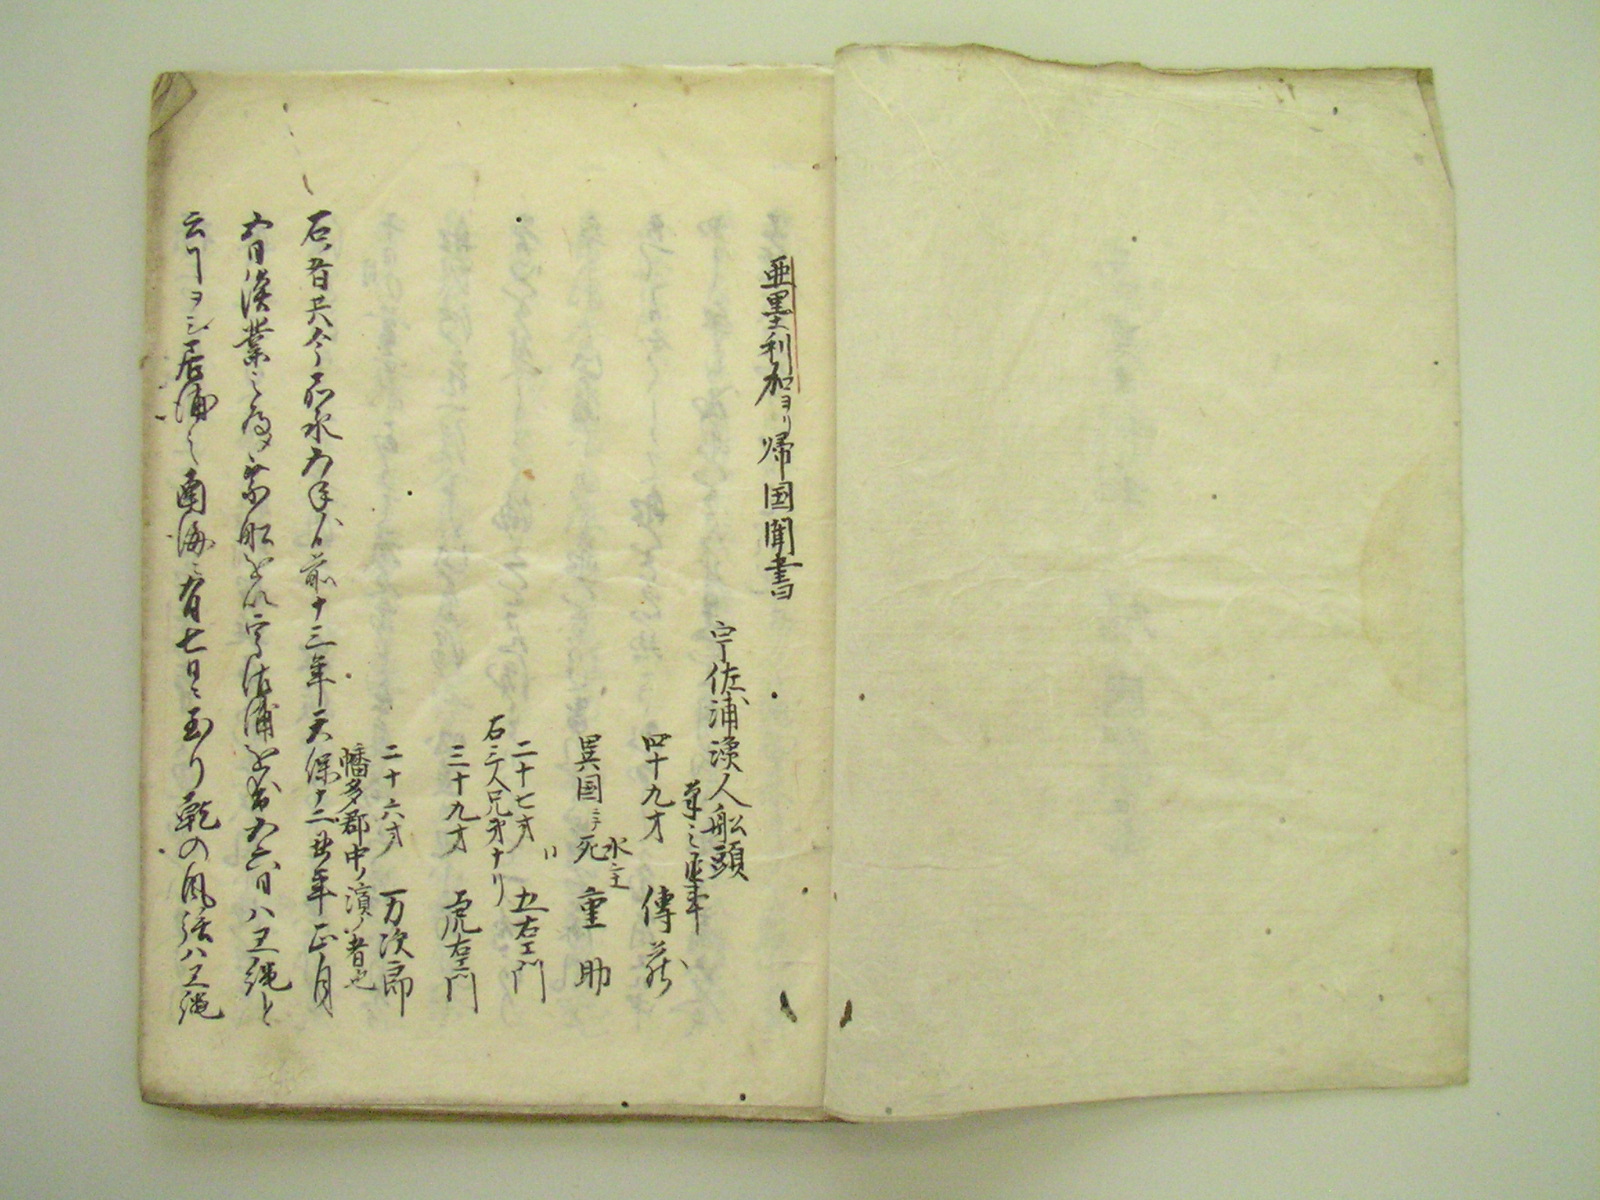 亜墨利加ヨリ帰国聞書
宇佐浦漁人船頭
筆之丞事
四十九才 傳蔵
水主
異国ニテ死 重助
二十七才 〃 五右エ門
右三人兄弟ナリ
三十九才 寅右エ門
二十六才 万次郎
幡多郡中ノ濱ノ者也
右ノ者共今嘉永五年ヨリ前十三年天保十二丑年正月
五日漁業之為メ乗船を以宇佐浦を出五六日ハエ縄と
云フヲシ居浦之南海ニ有七日ニ至り乾の風強ハエ縄